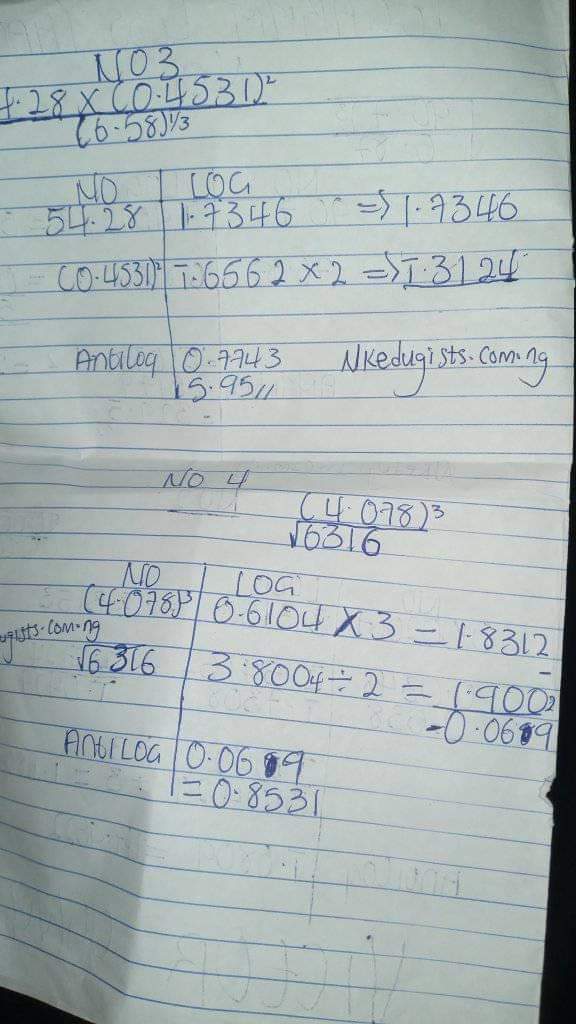 NO 3
4.28 × (0.4531)²
(6.58)1/3
NO LOG
54.28 1.7346 => 1.7346
(0.4531)² T.6562 × 2 => T.3124
Antilog 0.7743 Nkedugists.com.ng
5.95,,
NO 4
(4.078)³
√6316
NO LOG
(4.078)³ 0.6104 × 3 = 1.8312
ugists.com.ng
-
√6316 3.8004 ÷ 2 = 1.9002
-0.0689
ANTILOG 0.0689
= 0.8531